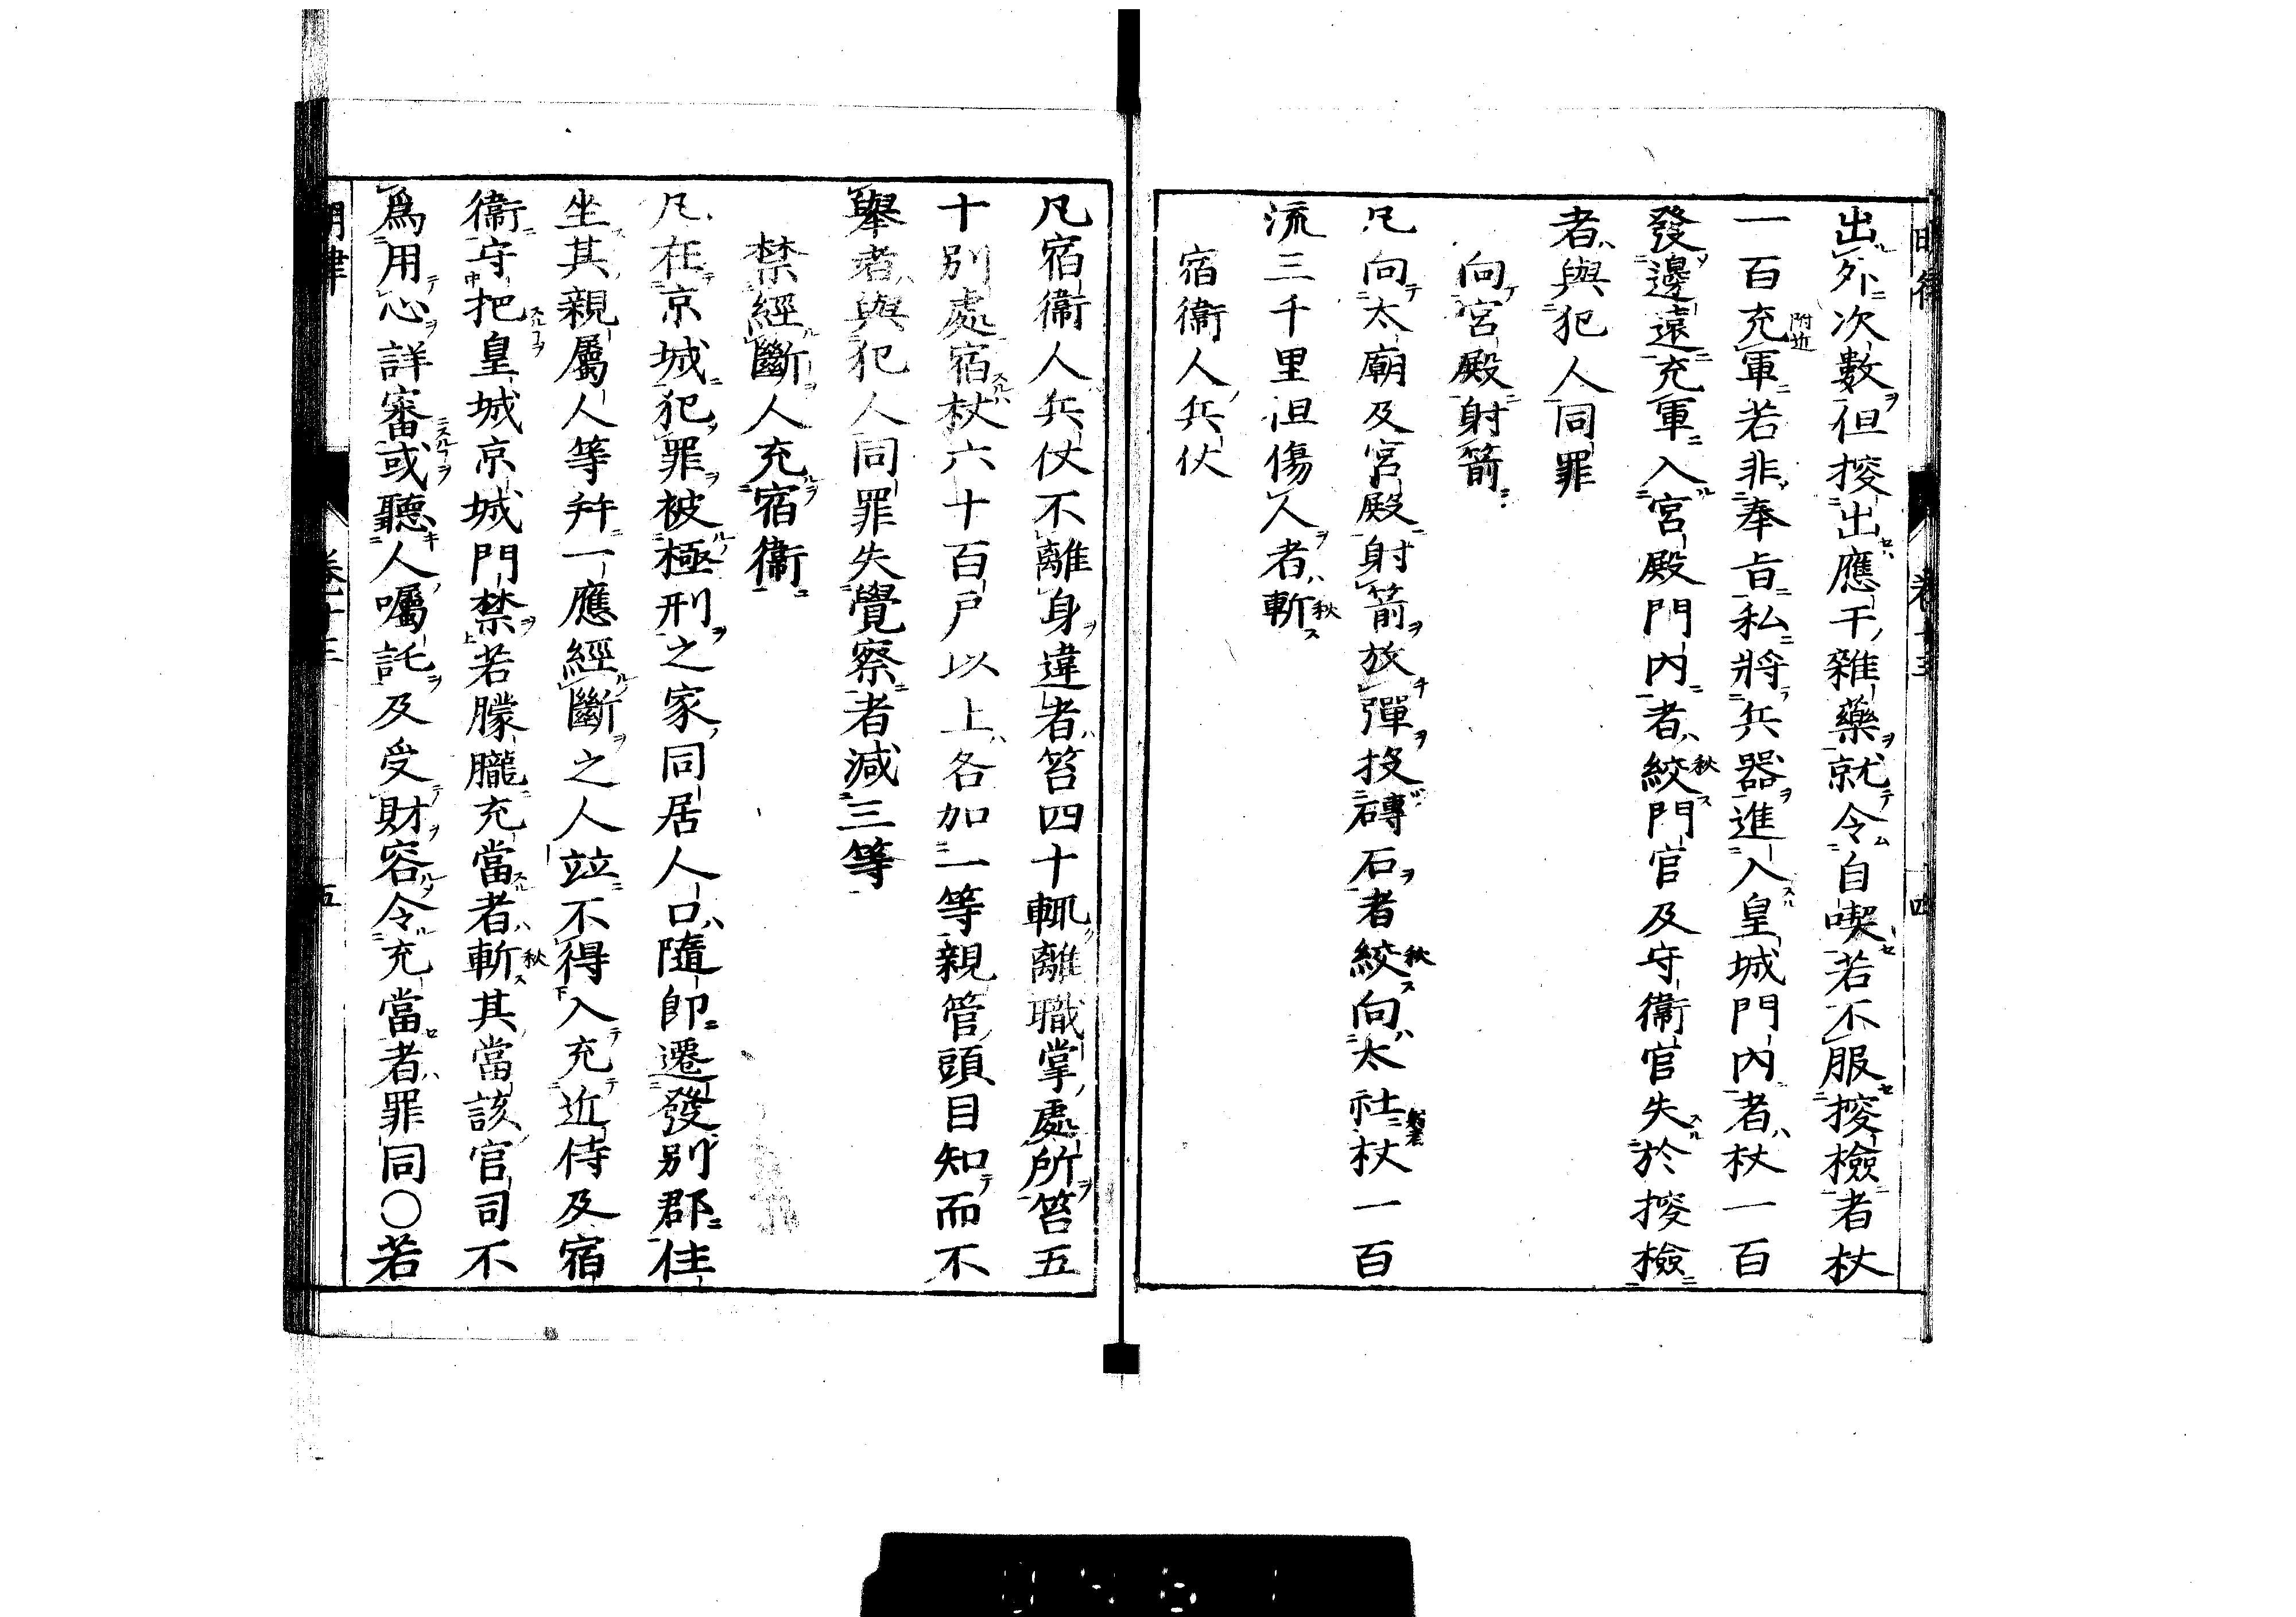 出外次數但搜出應干雜藥就令自喫若不服搜檢者杖
一百充軍若非奉旨私將兵器進入皇城門內者杖一百
附近
發邊遠充軍入宮殿門內者絞門官及守衛官失於搜檢
秋
者與犯人同罪
向宮殿射箭
凡向太廟及宮殿射箭放彈投磚石者絞向太社杖一百
秋
流三千里但傷人者斬
秋
宿衛人兵仗
凡宿衛人兵仗不離身違者笞四十輒離職掌處所笞五
十別處宿杖六十百戶以上各加一等親管頭目知而不
舉者與犯人同罪失覺察者減三等
禁經斷人充宿衛
凡在京城犯罪被極刑之家同居人口隨即遷發別郡住
坐其親屬人等并一應經斷之人竝不得入充近侍及宿
衛守把皇城京城門禁若朦朧充當者斬其當該官司不
秋
爲用心詳審或聽人囑託及受財容令充當者罪同○若
明律
卷十三
五